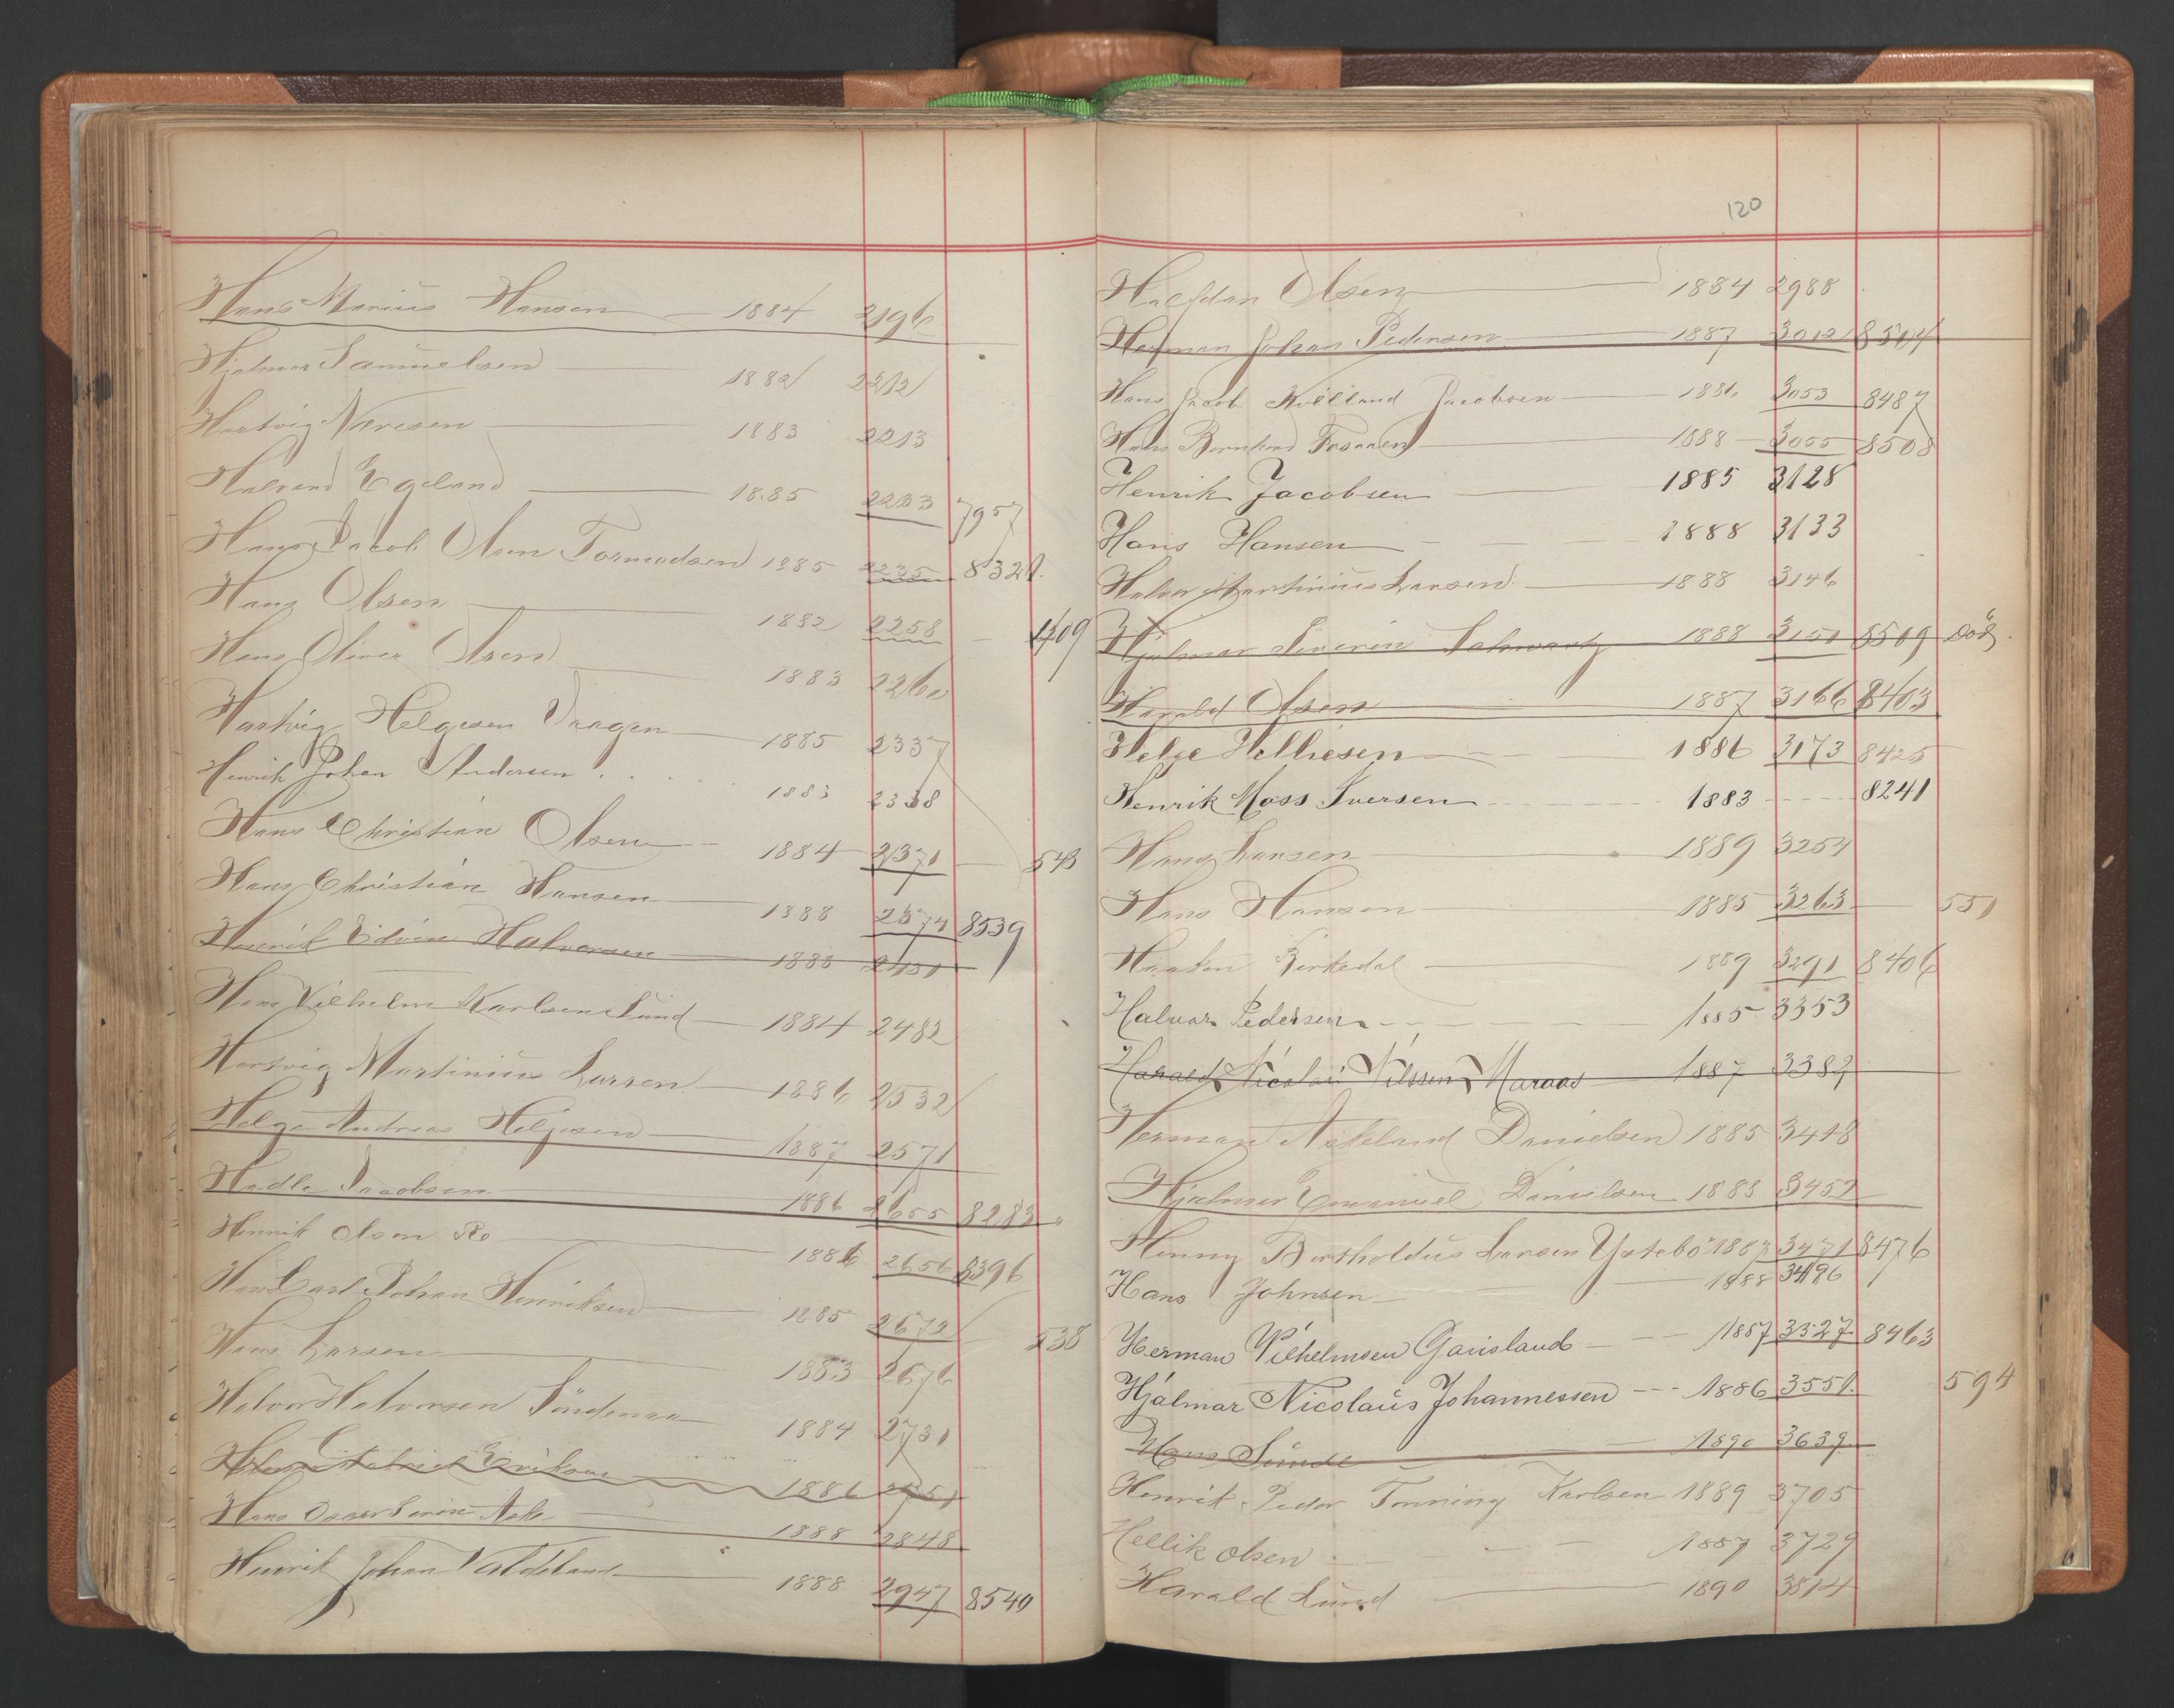 Hans Marius Hansen 1884 2196
Hjalmar Samuelsen 1882 2212
Hartvig Næresen 1883 2213
Halvard Egeland 1885 2233 7957
Hans Jacob Olsen Tormodsen 1885 2235 8321
Hans Olsen 1882 2258 1409
Hans Oliver Olsen 1883 2260
Hartvig Helgesen Vaagen 1885 2337
Henrik Johan Andersen 1883 2338
Hans Christian Olsen 1884 2371 548
Hans Christian Hansen 1888 2374 8539
Henrik Edvin Halvorsen 1888 2451
Hans Vilhelm Karlsen Lund 1884 2482
Hartvig Martinius Larsen 1886 2532
Helge Andreas Helgesen 1887 2571
Hadle Jacobsen 1886 2655 8283
Henrik Olsen Ro 1886 2656 8396
Hans Carl Johan Henriksen 1885 2672 538
Hans Larsen 1883 2676
Halvor Halvorsen Sündenaa 1884 2731
Eriksen 1886 2751
Hans Oscar Severin Aske 1888 2848
Henrik Johan Valdeland 1888 2947 8540
120
Halfdan Olsen 1884 2988
Herman Johan Pedersen 1887 3012 8504
Hans Jacob Kielland Jacobsen 1886 3053 8487
Hans Bernhard Fosaaen 1888 3055 8508
Henrik Jacobsen 1885 3128
Hans Hansen 1888 3133
Halvor Martinius Larsen 1888 3146
Hjalmar Severin Schwartz 1888 3151 8509 Död
Harald Olsen 1887 3166 8403
Helge Helliesen 1886 3173 8425
Henrik Moss Iversen 1883 8241
Hans Larsen 1889 3254
Hans Hansen 1885 3263 551
Haakon Kirkedal 1889 3291 8406
Halvor Pedersen 1885 3353
Harald Nicolai Nilssen Maraas 1887 3382
Herman Askeland Danielsen 1885 3448
Hjalmar Emanuel Danielsen 1888 3457
Henny Bertholdus Larsen Ystebö 1887 3471 8476
Hans Johnsen 1888 3496
Herman Vilhelmsen Gauslaud 1887 3527 8463
Hjalmar Nicolaüs Johannessen 1886 3551 594
Hans Sunde 1890 3639
Henrik Peder Tonning Karlsen 1889 3705
Hellik Olsen 1887 3729
Harald Lund 1890 3814